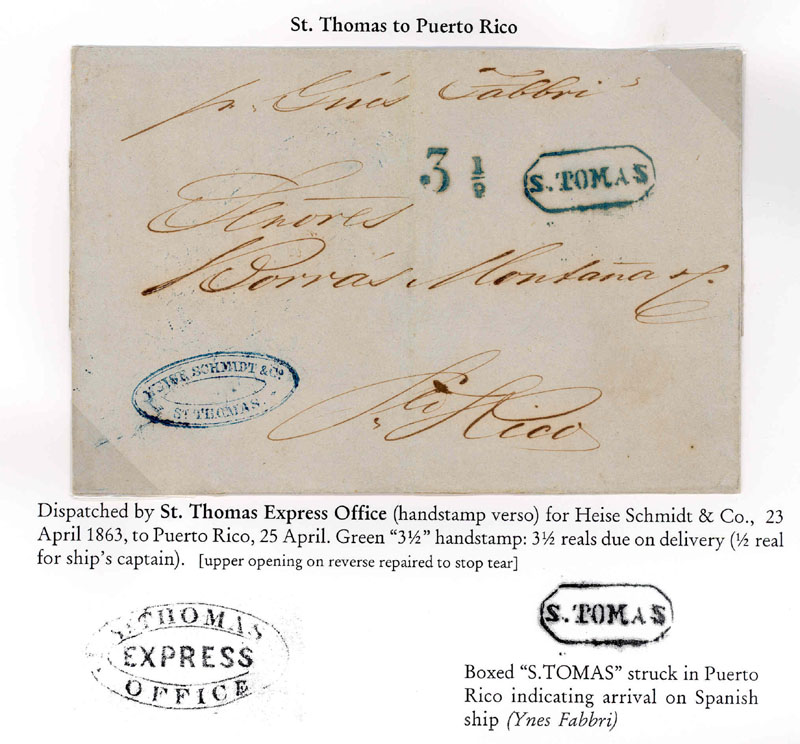 St. Thomas to Puerto Rico
pr. Ynés Fabbri
3 1/2
S. TOMAS
Señores
Borrás Montaña & C.
HEISE SCHMIDT & Co.
ST THOMAS.
Pto Rico
Dispatched by St. Thomas Express Office (handstamp verso) for Heise Schmidt & Co., 23
April 1863, to Puerto Rico, 25 April. Green “3½” handstamp: 3½ reals due on delivery (½ real
for ship’s captain). [upper opening on reverse repaired to stop tear]
ST. THOMAS
EXPRESS
OFFICE
S. TOMAS
Boxed “S.TOMAS” struck in Puerto
Rico indicating arrival on Spanish
ship (Ynes Fabbri)